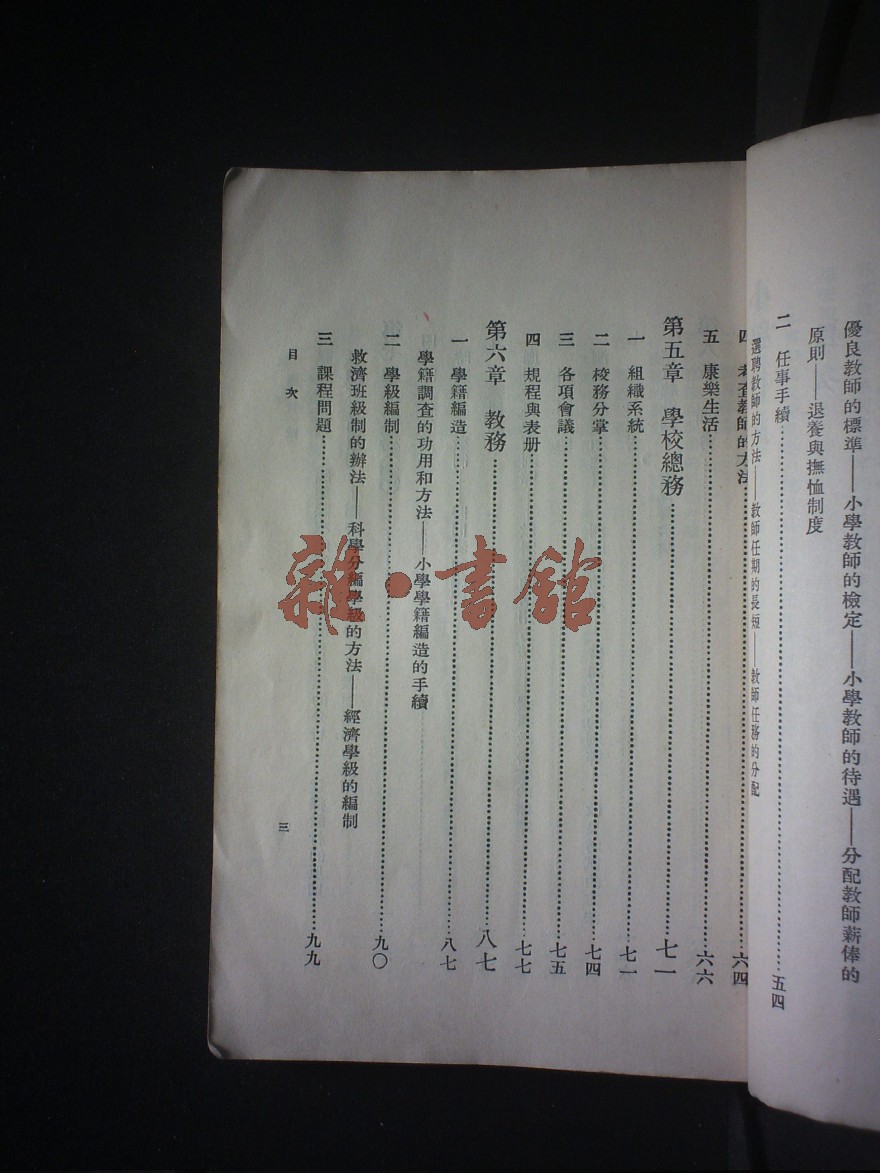 優良教師的標準——小學教師的檢定——小學教師的待遇——分配教師薪俸的
原則——退養與撫恤制度
二 任事手續……五四
選聘教師的方法——教師任期的長短——教師任務的分配
四 考查教師的方法……六四
五 康樂生活……六六
第五章 學校總務……七一
一 組織系統……七一
二 校務分掌……七四
三 各項會議……七五
四 規程與表册……七七
第六章 教務……八七
一 學籍編造……八七
學籍調查的功用和方法——小學學籍編造的手續
二 學級編制……九〇
救濟班級制的辦法——科學分編學級的方法——經濟學級的編制
三 課程問題……九九
目次
三
雜·書館